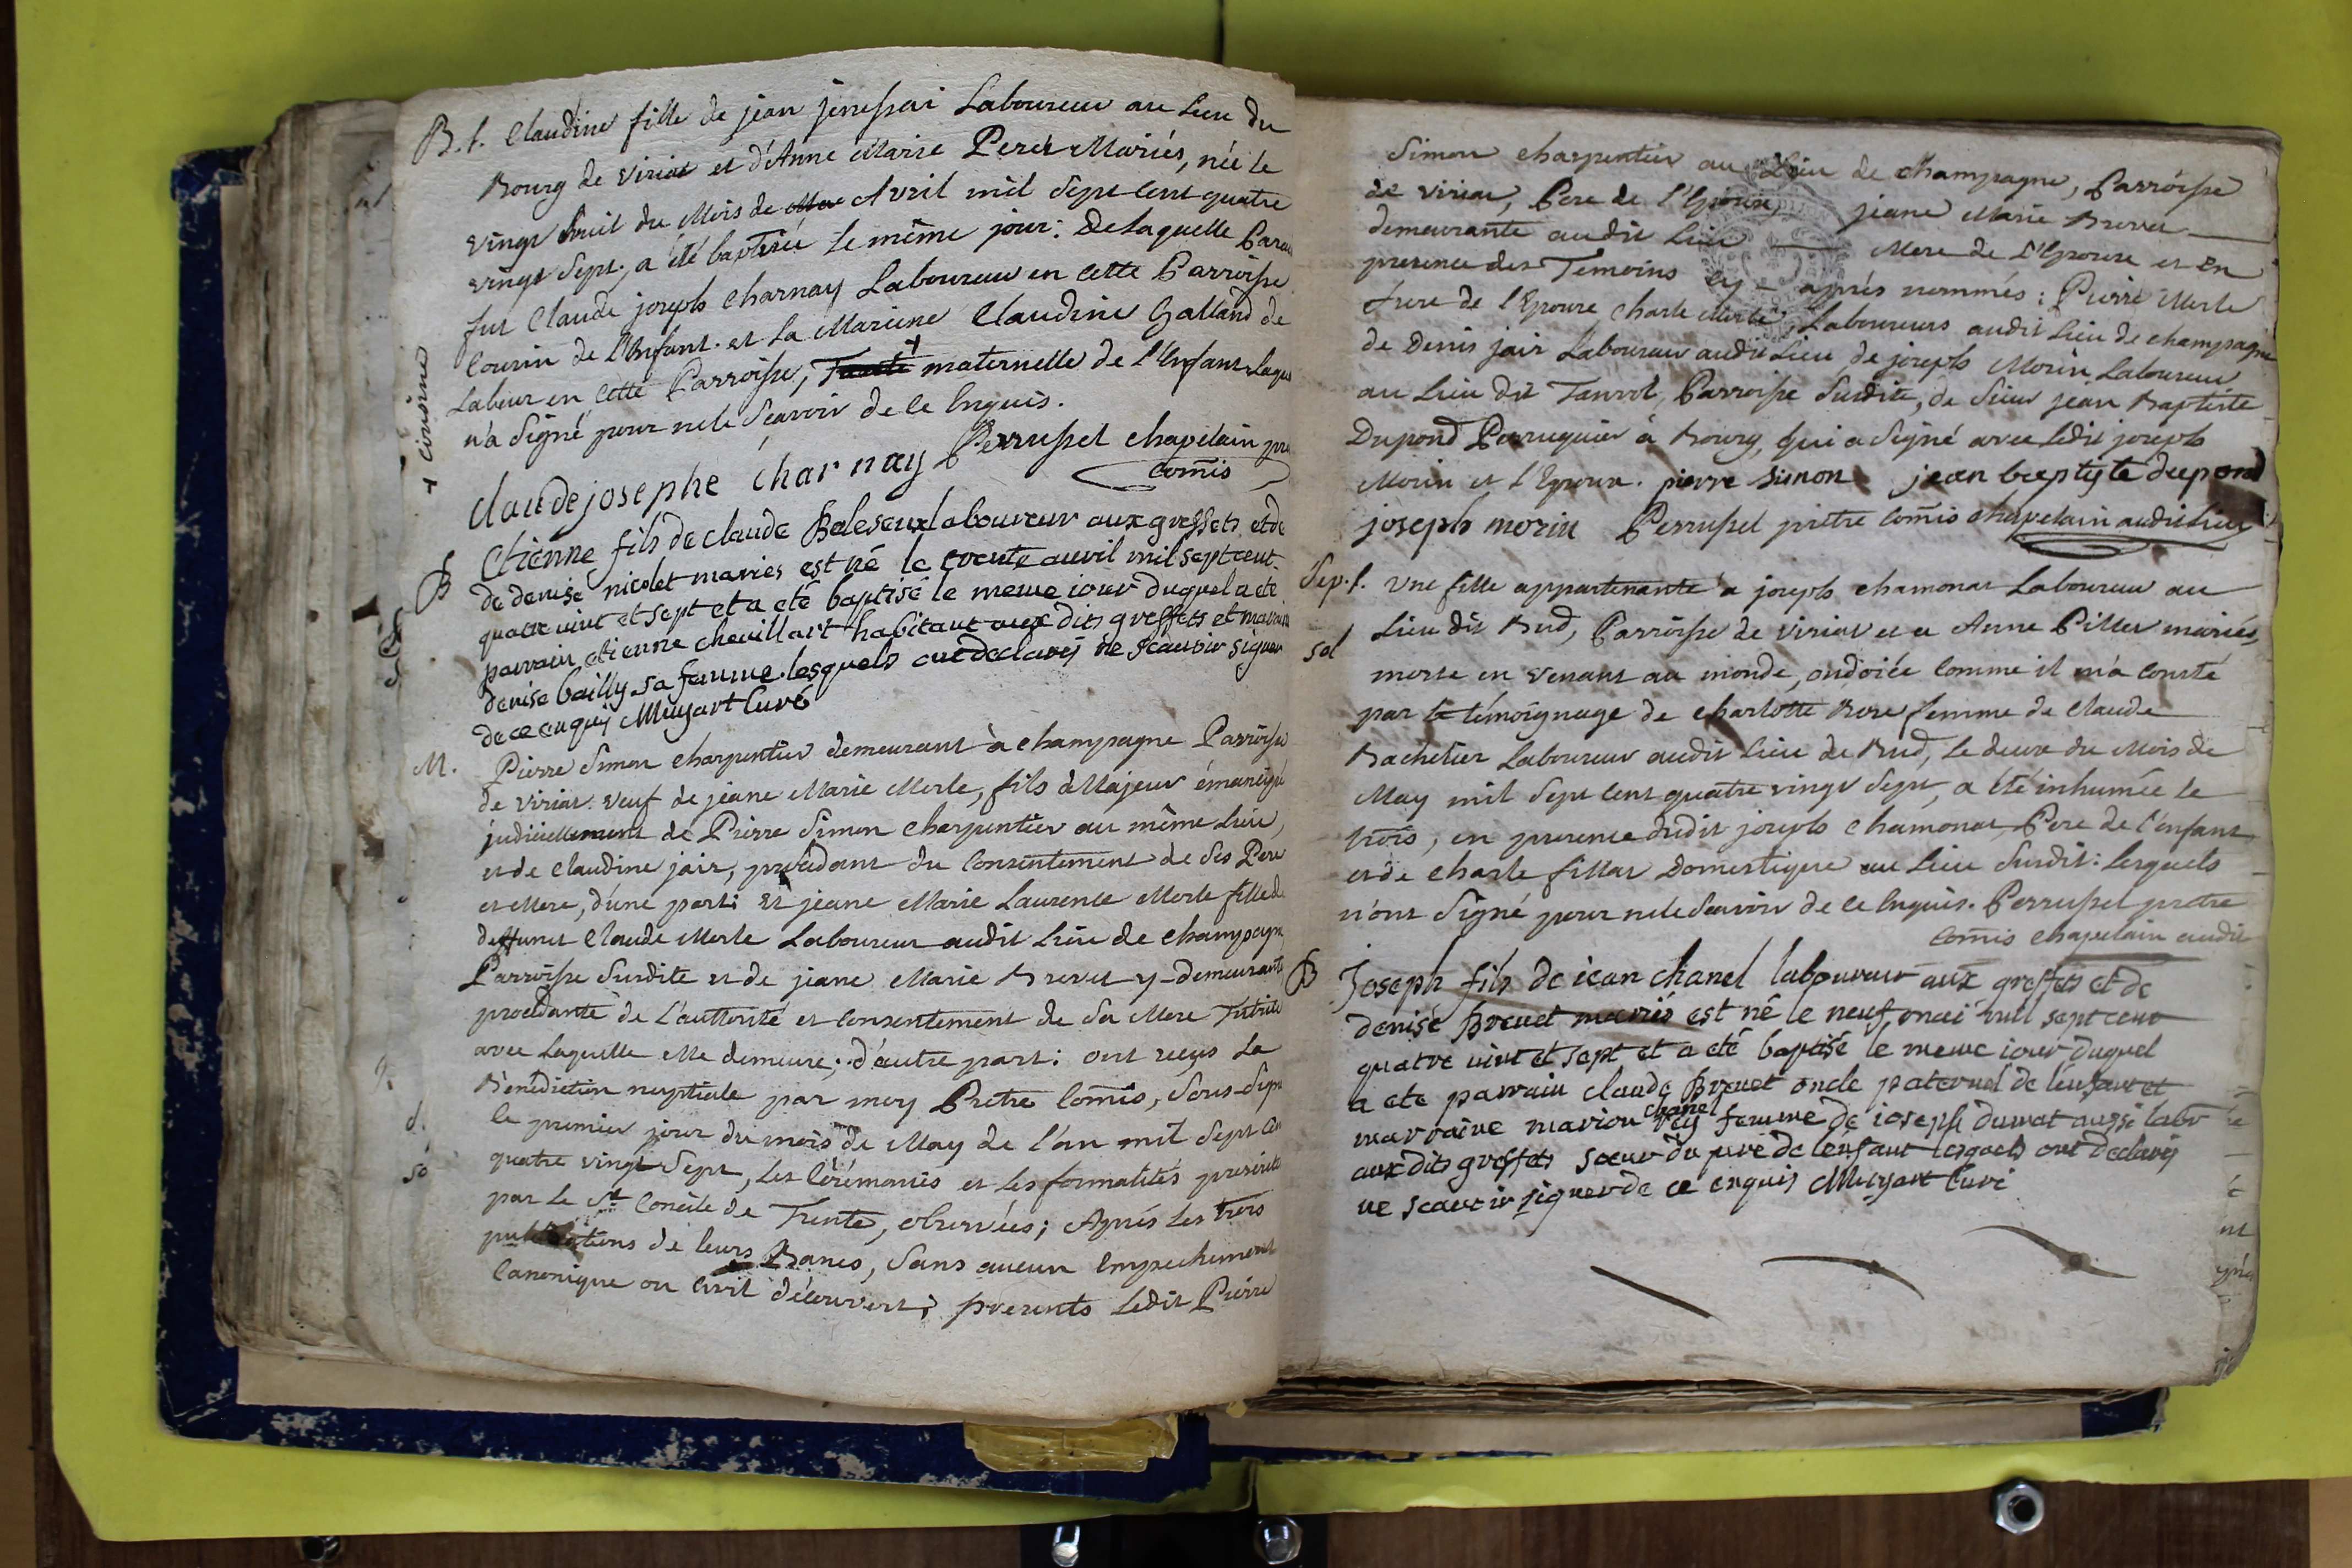 B. f. Claudine fille de jean jenessai Laboureur au Lieu du
Bourg de viriat et d'Anne Marie Peret Mariés, née le
vingt huit du Mois de Avril mil Sept Cent quatre
vingt Sept, a été baptisée le même jour: De Laquelle
fut Claude joseph Charnay Laboureur en Cette Parroisse
Cousin de l'Enfant. et La Maraine Claudine Galland de
Labeur en Cette Parroisse, Tante + maternelle de l'Enfant
n'a Signé pour ne le Sçavoir de ce Enquis.
+ Cousine
Claude josephe Charnay Perrussel chapelain
Comis
B Etienne fils de claude laboureur aux greffets et de
de denise nicolet mariés est né le trente avril mil sept cent
quatre vint et sept et a eté baptisé le meme iour duquel a eté
parrain etienne chevillart habitant aux dits greffets et
denise bailly sa femme lesquels ont declarés ne scauoir signer
de ce enquis Muyart Curé
M. Pierre Simon charpentier demeurant à champagne Parroisse
de viriat. veuf de jeane Marie Merle, fils Majeur émancipé
judiciellement de Pierre Simon charpentier au même Lieu,
et de Claudine jair, procédant du Consentement de Ses Pere
et Mere, d'une part: Et jeane Marie Laurence Merle fille de
deffunct Claude Merle Laboureur audit Lieu de Champagne
Parroisse Surdite et de jeane Marie Brevet y demeurante
procédante de L'authorité et Consentement de Sa Mere Tutrice
avec Laquelle elle demeure; d'autre part: ont reçus La
Bénédiction nuptiale par moy Prêtre Comis, Sous-Signé
le premier jour du mois de May de l'an mil Sept Cent
quatre vingt Sept, Les Cérémonies et Les formalités prescrites
par Le St Concile de Trente, observées; Aprés Les trois
publications de leurs Bancs, Sans aucun Empechement
Canonique ou Civil découvert; presents Ledit Pierre
Simon charpentier au Lieu de Champagne, Parroisse
de viriat, Pere de l'Epoux, jeane Marie Brevet
demeurante audit Lieu Mere de L'Epouse et En
presence des Temoins Cy - aprés nommés: Pierre Merle
frere de l'Epouse Charle Merle, Laboureurs audit Lieu de champagne
de Denis jair Laboureur audit Lieu, de joseph Morin Laboureur
au Lieu dit Tanvol, Parroisse Surdite, de Sieur jean Baptiste
Dupond Perruquier à Bourg, qui a Signé avec Ledit joseph
Morin et l'Epoux. pierre simon jean baptyste dupond
joseph morin Perrussel prêtre Comis chapelain audit Lieu
Sep. f. Une fille appartenante à joseph chamonat Laboureur au
Lieu dit Bud, Parroisse de viriat et a Anne Pillet mariés,
sol morte en venant au monde, ondoiée Comme il m'a Consté
par le témoignage de charlotte Bose femme de Claude
Bachelier Laboureur audit Lieu de Bud, Le deux du Mois de
May mil Sept Cent quatre vingt Sept, a été inhumée le
trois, en presence dudit joseph Chamonat Pere de l'enfant
et de Charle fillat Domestique au Lieu Surdit: Lesquels
n'ont Signé pour ne le Scavoir de ce Enquis. Perrussel pretre
Comis chapelain audit
B Joseph fils de iean chanel laboureur aux greffets et de
denise brevet mariés est né le neuf mai mil sept cent
quatre vint et sept et a eté baptisé le meme iour duquel
a eté parrain claude Brevet oncle paternel de lenfant et
marraine marion chanel femme de ioseph durat aussi labr
aux dits greffets soeur du pere de lenfant lesquels ont declarés
ne scauoir signer de ce enquis Muyart Curé